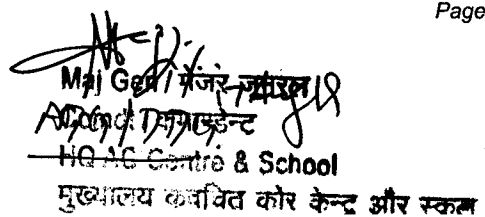 Page
Maj Gen / मेजर जनरल
Comdt / कमांडेन्ट
HQ AC Centre & School
मुख्यालय कवचित कोर केन्द्र और स्कूल